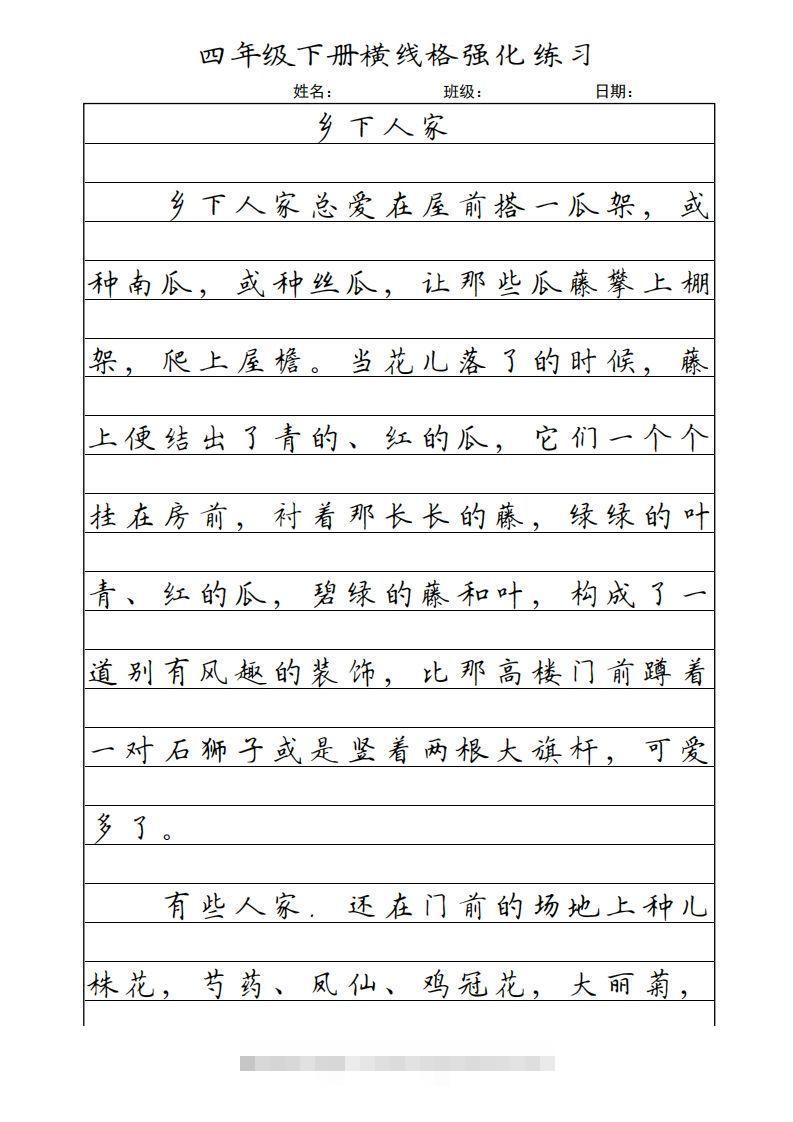 四年级下册横线格强化练习
姓名： 班级： 日期：
乡下人家
乡下人家总爱在屋前搭一瓜架，或
种南瓜，或种丝瓜，让那些瓜藤攀上棚
架，爬上屋檐。当花儿落了的时候，藤
上便结出了青的、红的瓜，它们一个个
挂在房前，衬着那长长的藤，绿绿的叶
青、红的瓜，碧绿的藤和叶，构成了一
道别有风趣的装饰，比那高楼门前蹲着
一对石狮子或是竖着两根大旗杆，可爱
多了。
有些人家．还在门前的场地上种儿
株花，芍药、凤仙、鸡冠花，大丽菊，